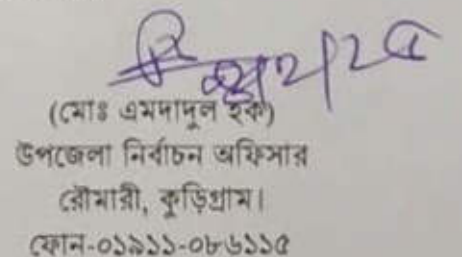 (মোঃ এমদাদুল হক)
উপজেলা নির্বাচন অফিসার
রৌমারী, কুড়িগ্রাম।
ফোন-০১৯১১-০৮৬১১৫